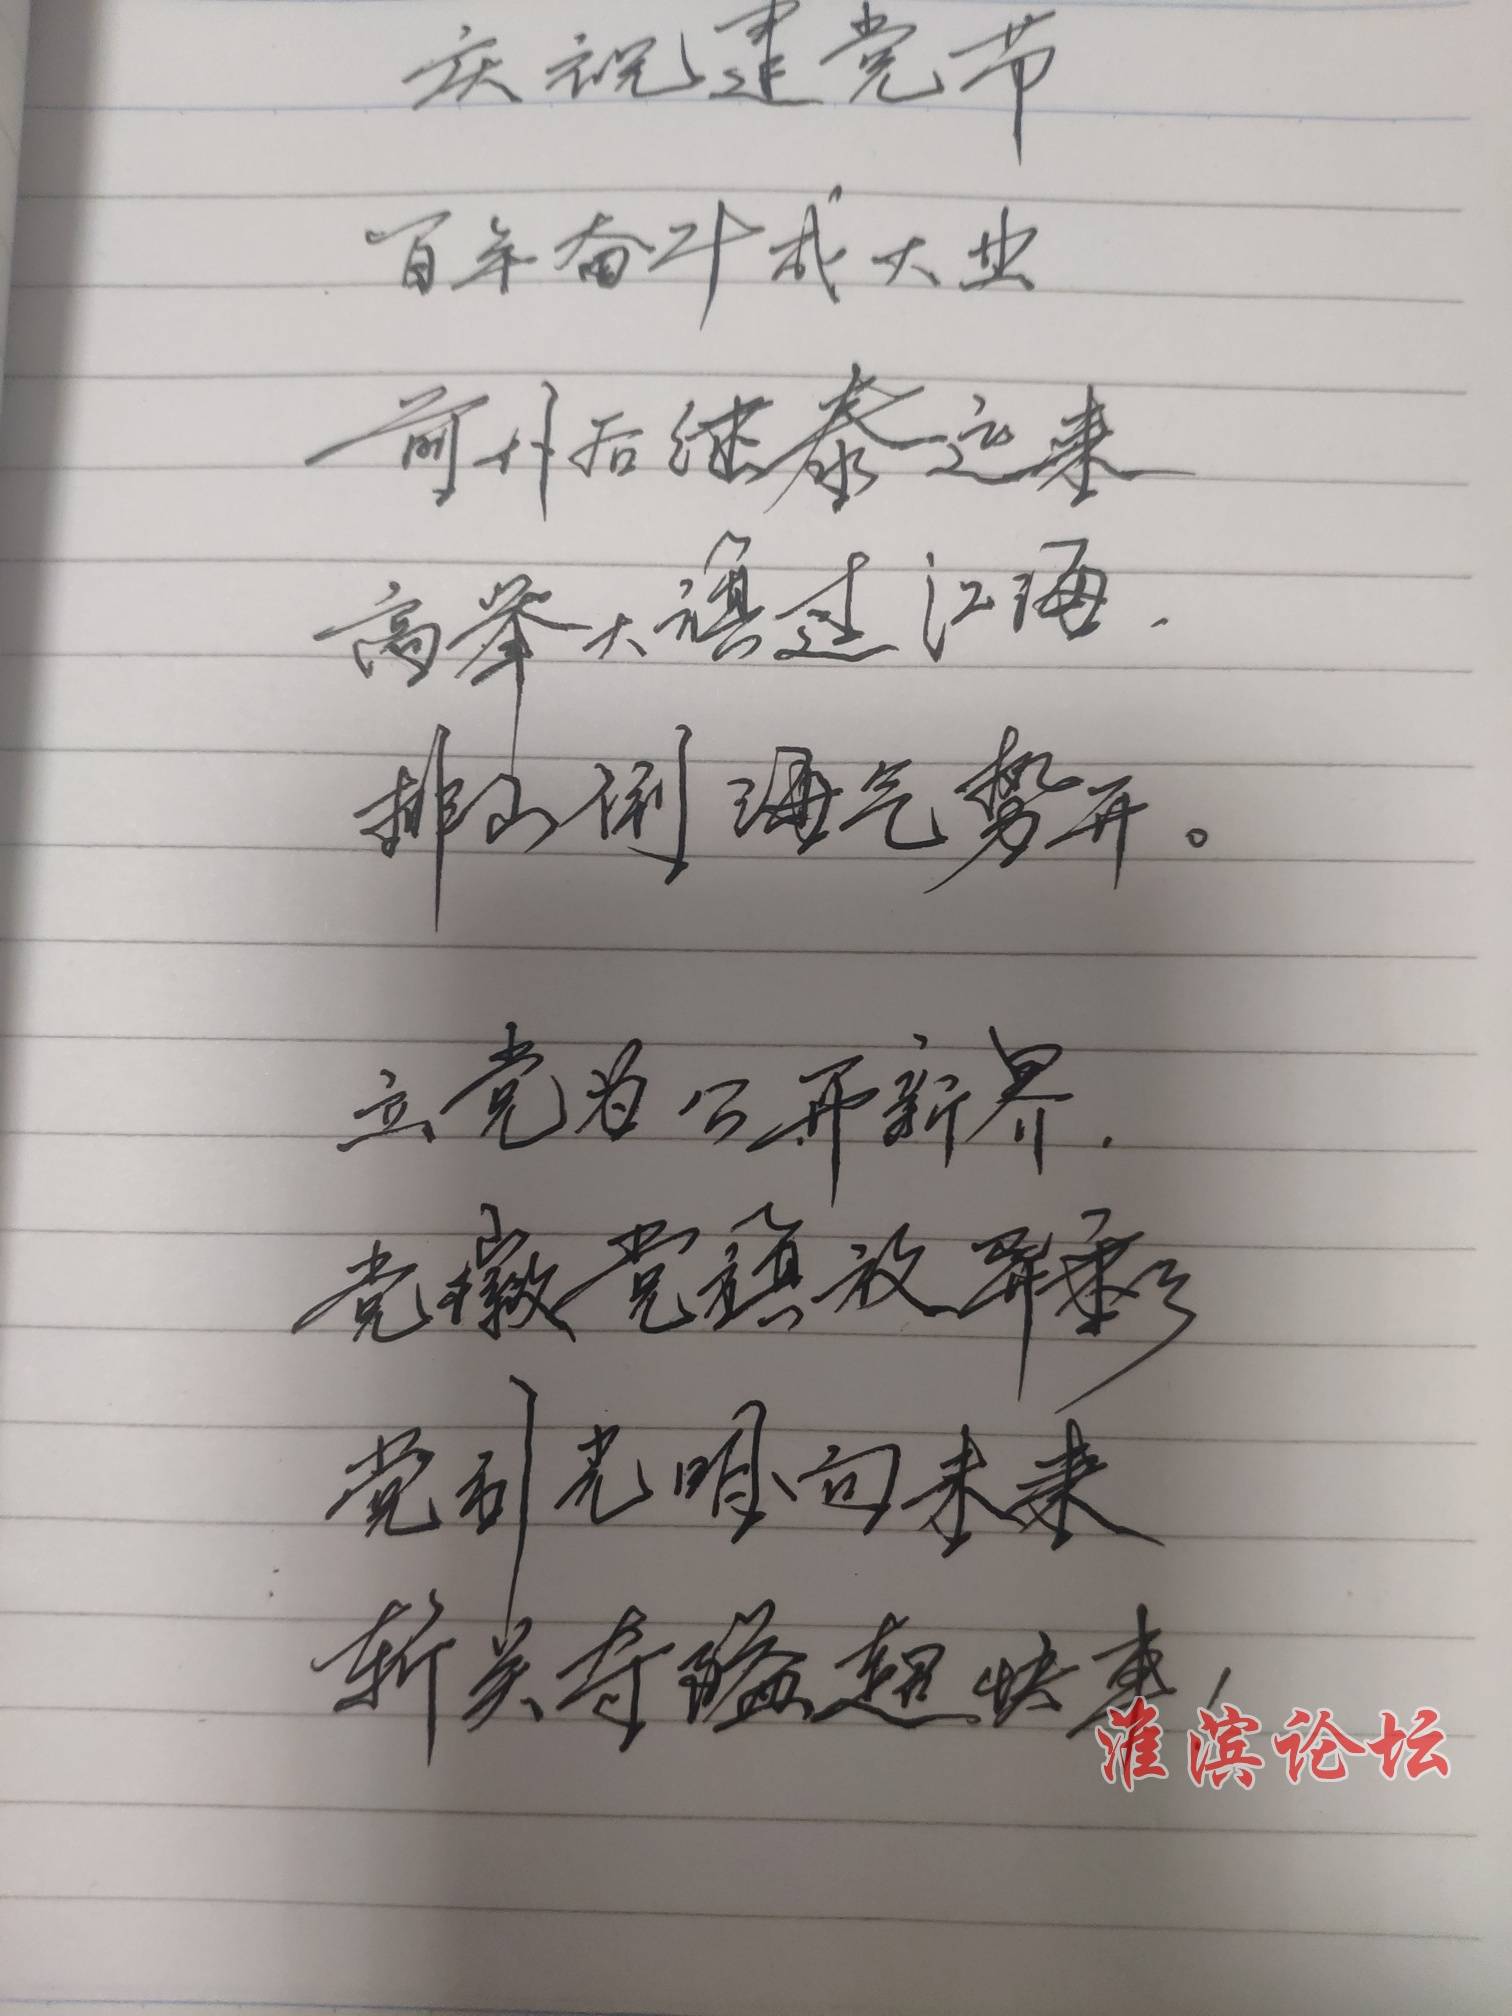 庆祝建党节
百年奋斗成大业
前升后继泰运来
高举大旗过江海.
排山倒海气势开。
立党为公开新界.
党徽党旗放异彩
党引光明向未来
斩关夺隘超快车!
淮滨论坛